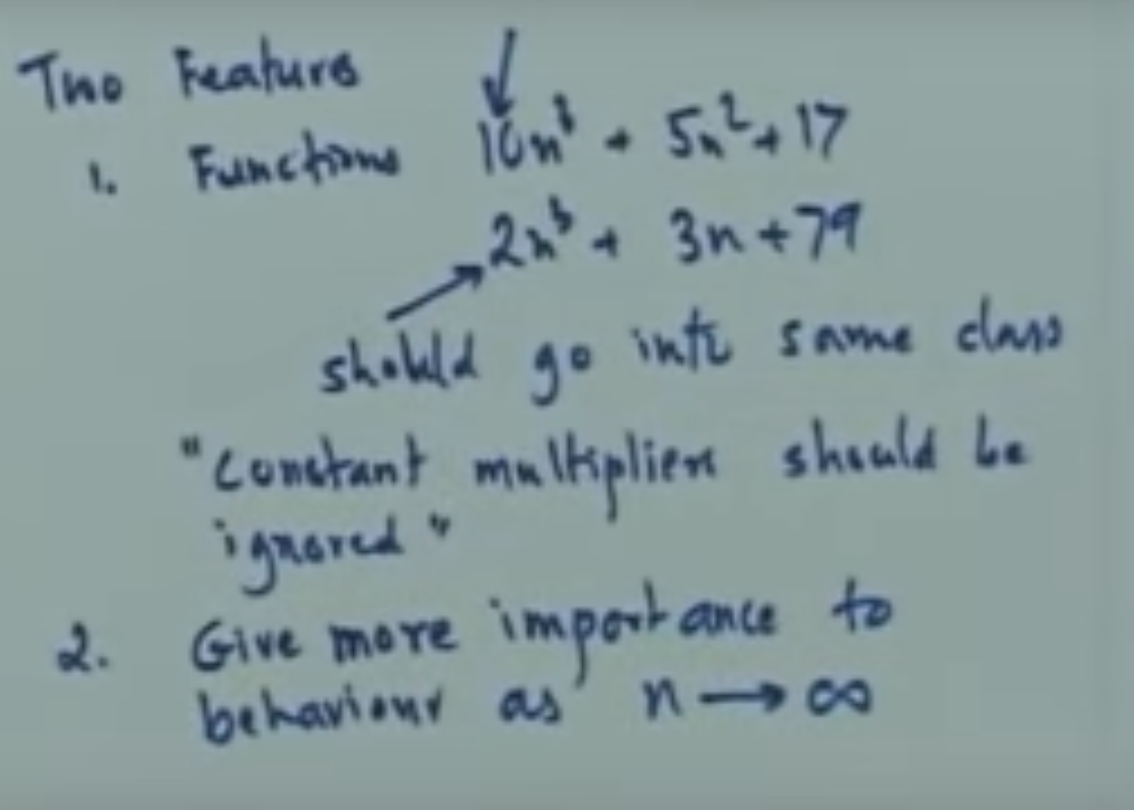 Two Features
1. Functions 10n³ + 5n² + 17
2n³ + 3n + 79
should go into same class
"Constant multipliers should be
ignored"
2. Give more importance to
behaviour as n → ∞